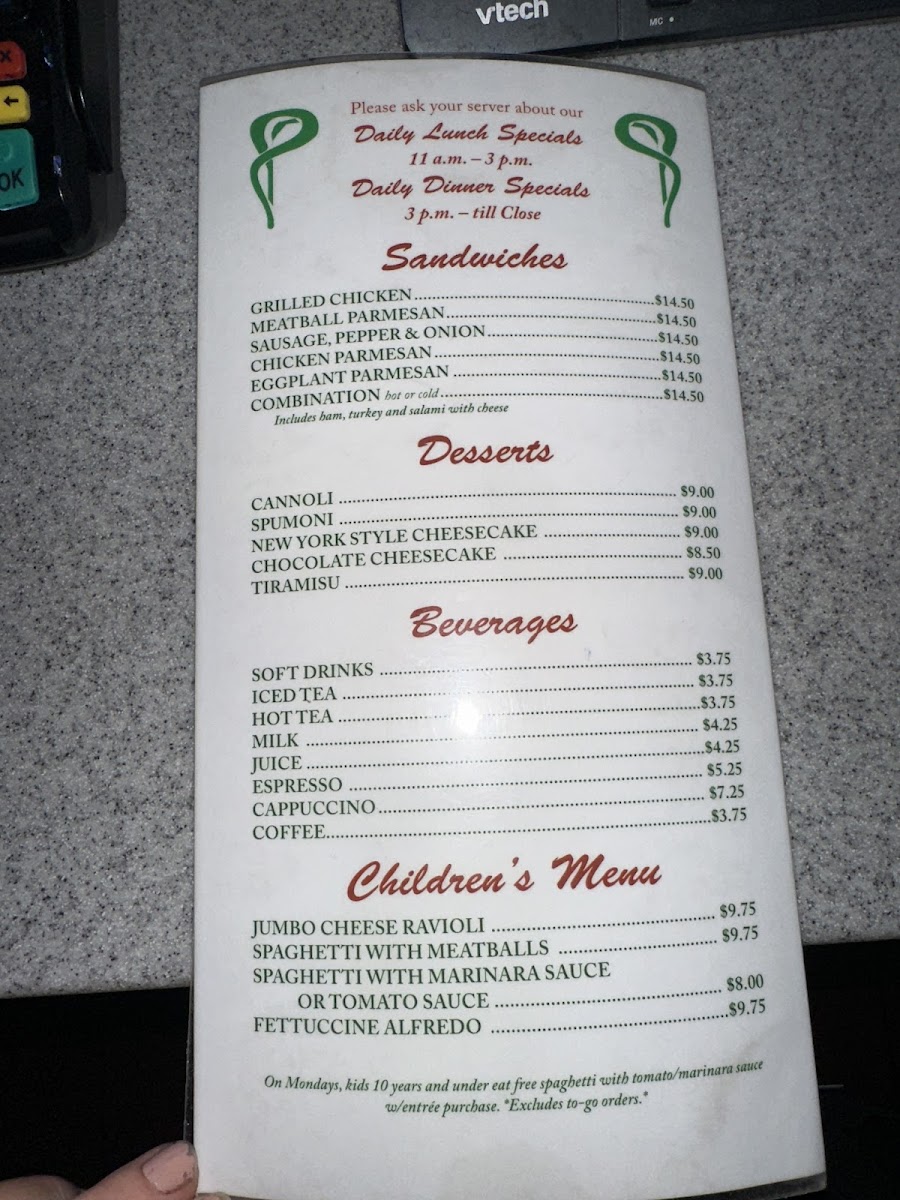 vtech
MIC
X
←
OK
Please ask your server about our
Daily Lunch Specials
11 a.m. – 3 p.m.
Daily Dinner Specials
3 p.m. – till Close
Sandwiches
GRILLED CHICKEN $14.50
MEATBALL PARMESAN $14.50
SAUSAGE, PEPPER & ONION $14.50
CHICKEN PARMESAN $14.50
EGGPLANT PARMESAN $14.50
COMBINATION hot or cold $14.50
Includes ham, turkey and salami with cheese
Desserts
CANNOLI $9.00
SPUMONI $9.00
NEW YORK STYLE CHEESECAKE $9.00
CHOCOLATE CHEESECAKE $8.50
TIRAMISU $9.00
Beverages
SOFT DRINKS $3.75
ICED TEA $3.75
HOT TEA $3.75
MILK $4.25
JUICE $4.25
ESPRESSO $5.25
CAPPUCCINO $7.25
COFFEE $3.75
Children's Menu
JUMBO CHEESE RAVIOLI $9.75
SPAGHETTI WITH MEATBALLS $9.75
SPAGHETTI WITH MARINARA SAUCE
OR TOMATO SAUCE $8.00
FETTUCCINE ALFREDO $9.75
On Mondays, kids 10 years and under eat free spaghetti with tomato/marinara sauce
w/entrée purchase. *Excludes to-go orders.*